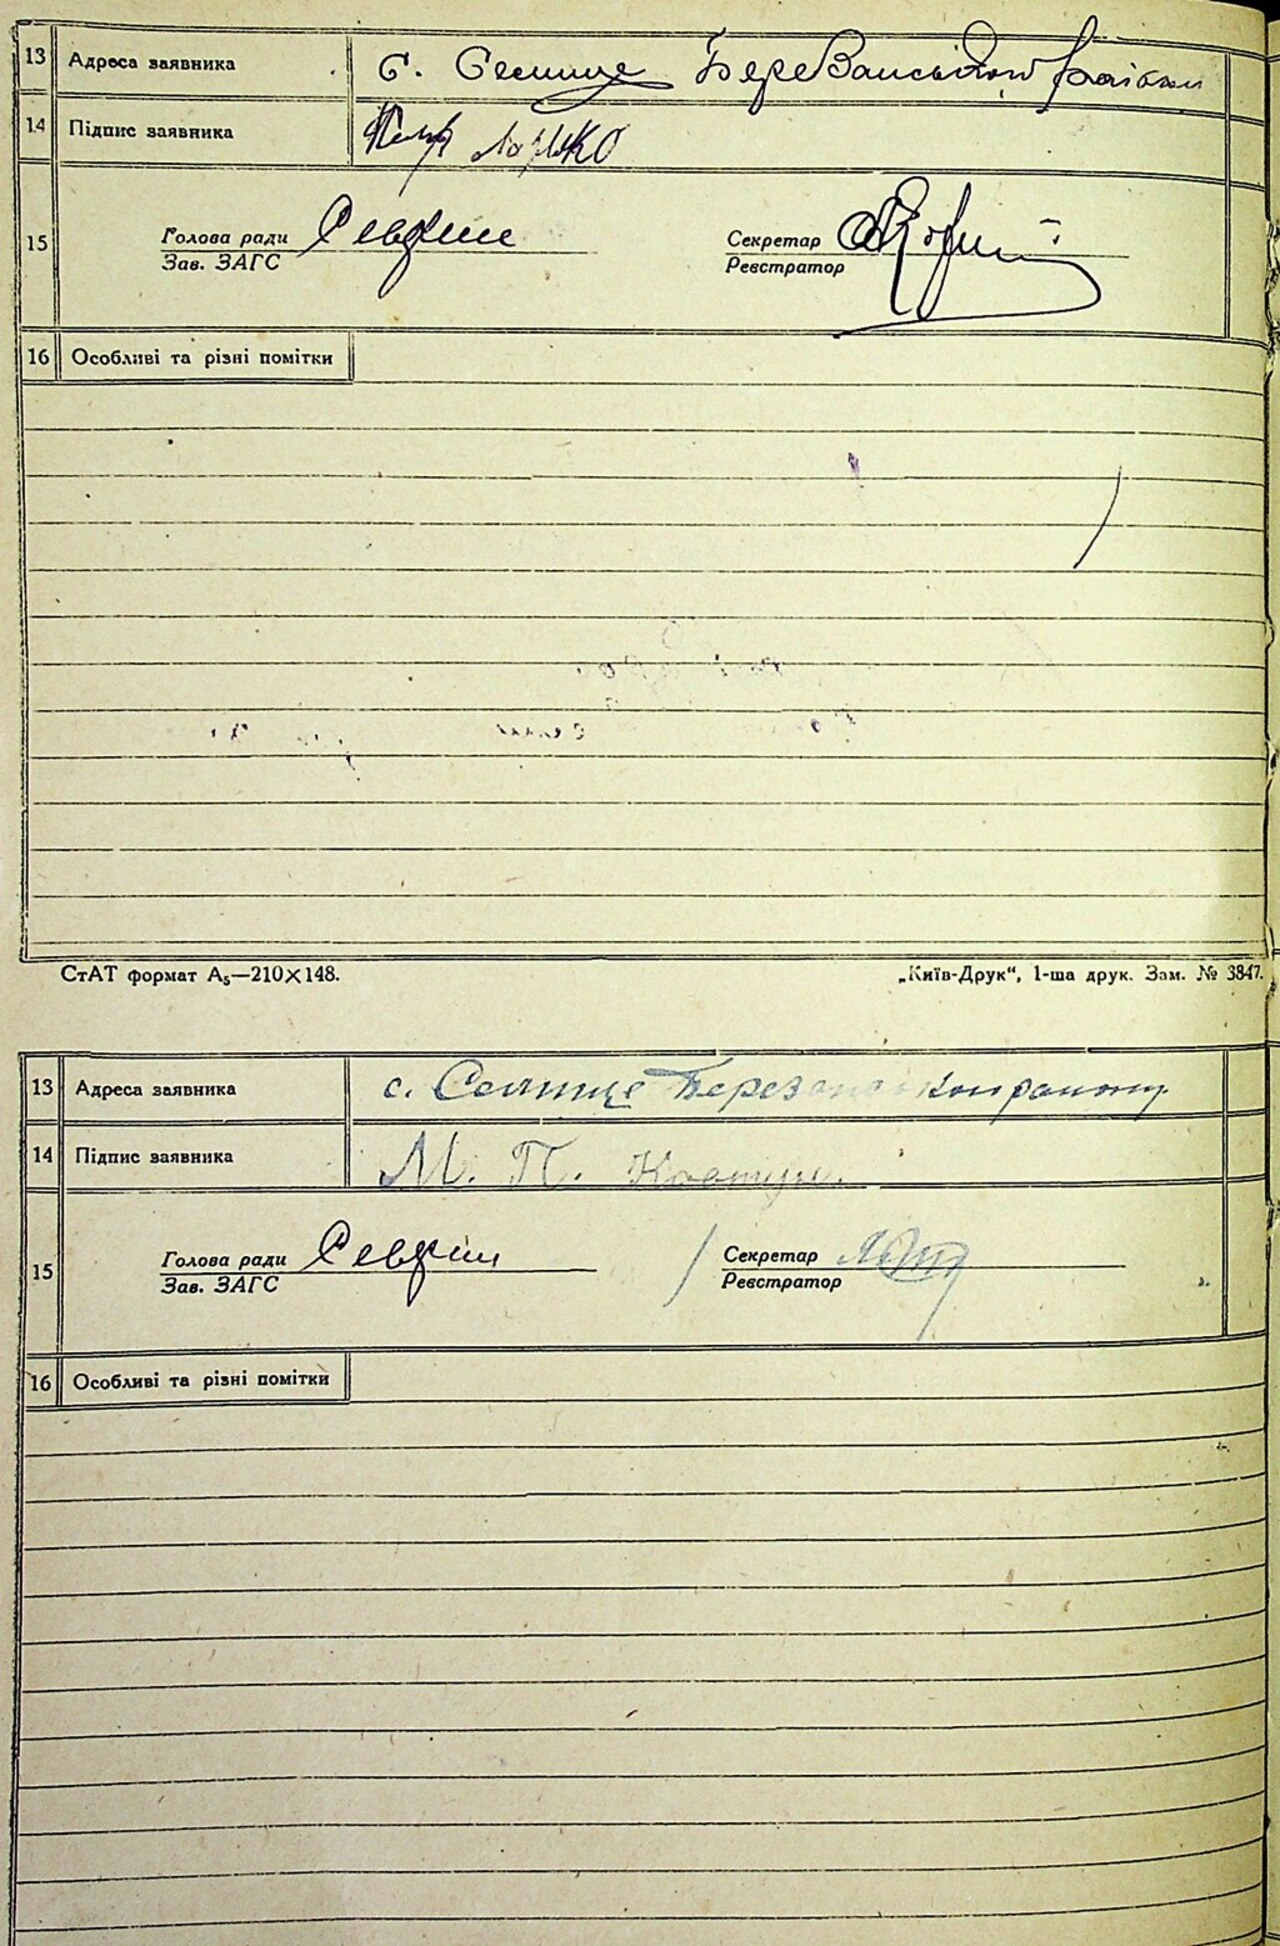 13 Адреса заявника с. Селище Березанського району
14 Підпис заявника
15 Голова ради Секретар
Зав. ЗАГС Реєстратор
16 Особливі та різні помітки
СтАТ формат А₅—210×148. „Київ-Друк“, 1-ша друк. Зам. № 3847.
13 Адреса заявника с. Селище Березанського району
14 Підпис заявника М. П. Ковтун.
15 Голова ради Секретар
Зав. ЗАГС Реєстратор
16 Особливі та різні помітки